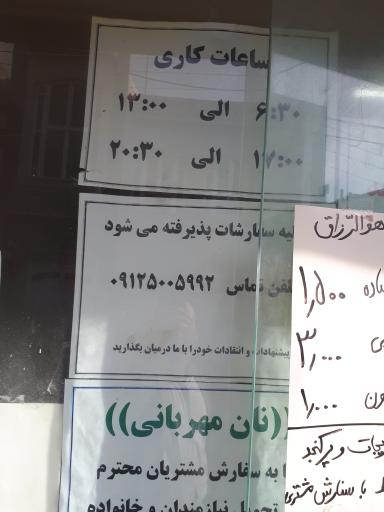 ساعات کاری
۶:۳۰ الی ۱۳:۰۰
۱۷:۰۰ الی ۲۰:۳۰
سفارشات پذیرفته می شود
تلفن تماس ۰۹۱۲۵۰۰۵۹۹۲
پیشنهادات و انتقادات خودرا با ما درمیان بگذارید
((نان مهربانی))
به سفارش مشتریان محترم
تحویل نیازمندان و خانواده
هوالرزاق
ساده ۱,۵۰۰
۳,۰۰۰
۱,۰۰۰
با سفارش مشتری